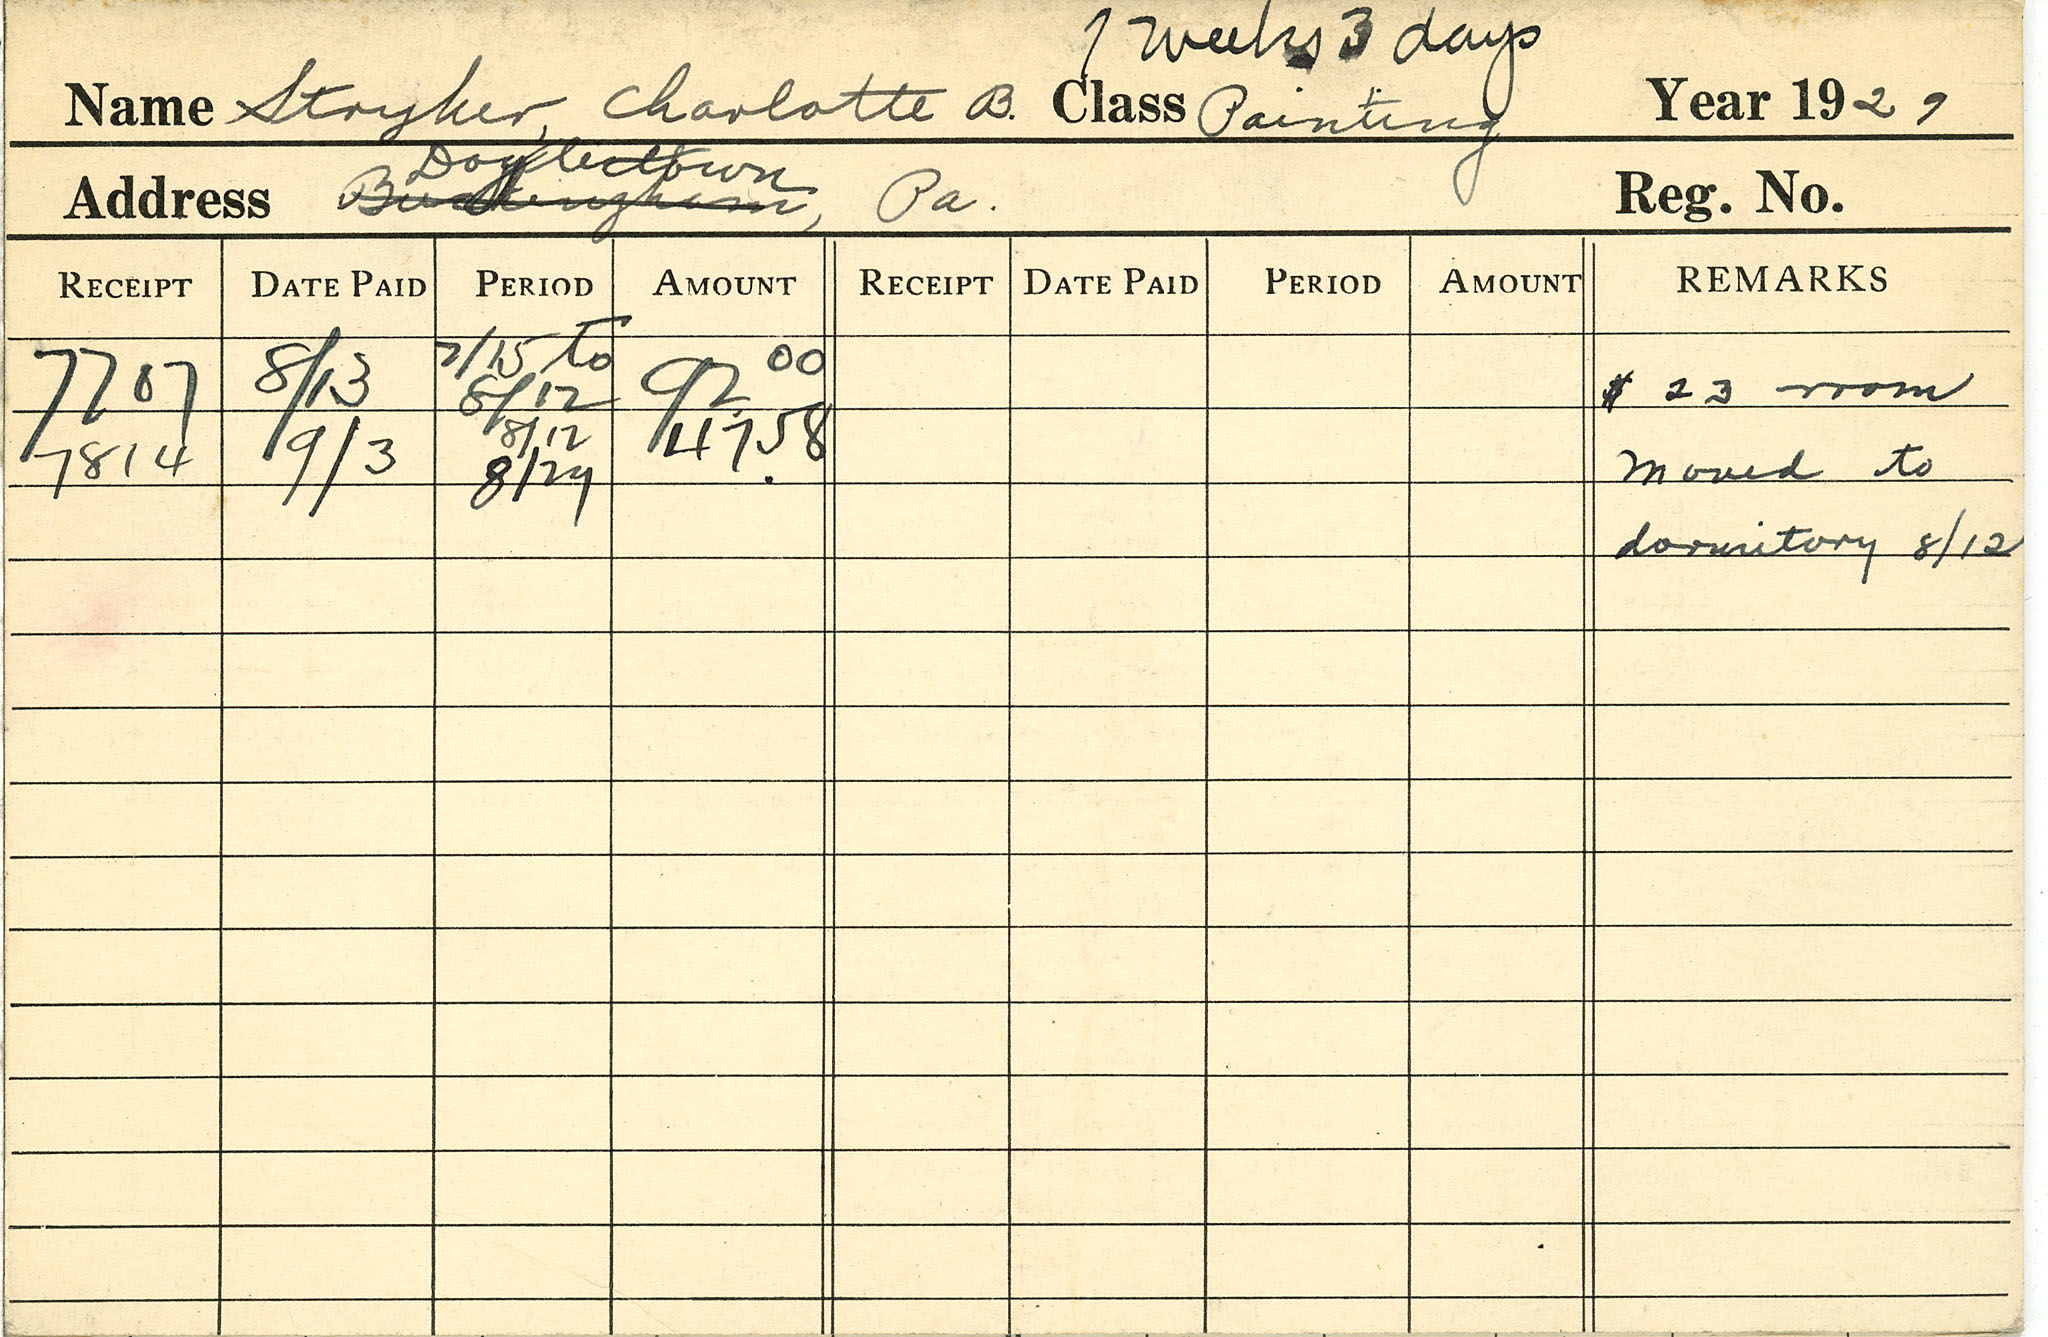 7 weeks 3 days
Name Stryker, Charlotte B. Class Painting Year 1929
Doylestown
Address Buckingham, Pa. Reg. No.
RECEIPT DATE PAID PERIOD AMOUNT RECEIPT DATE PAID PERIOD AMOUNT REMARKS
7707 8/13 7/15 to 8/12 92.00 $ 23 room
7814 9/3 8/12 8/29 47.58 Moved to
dormitory 8/12